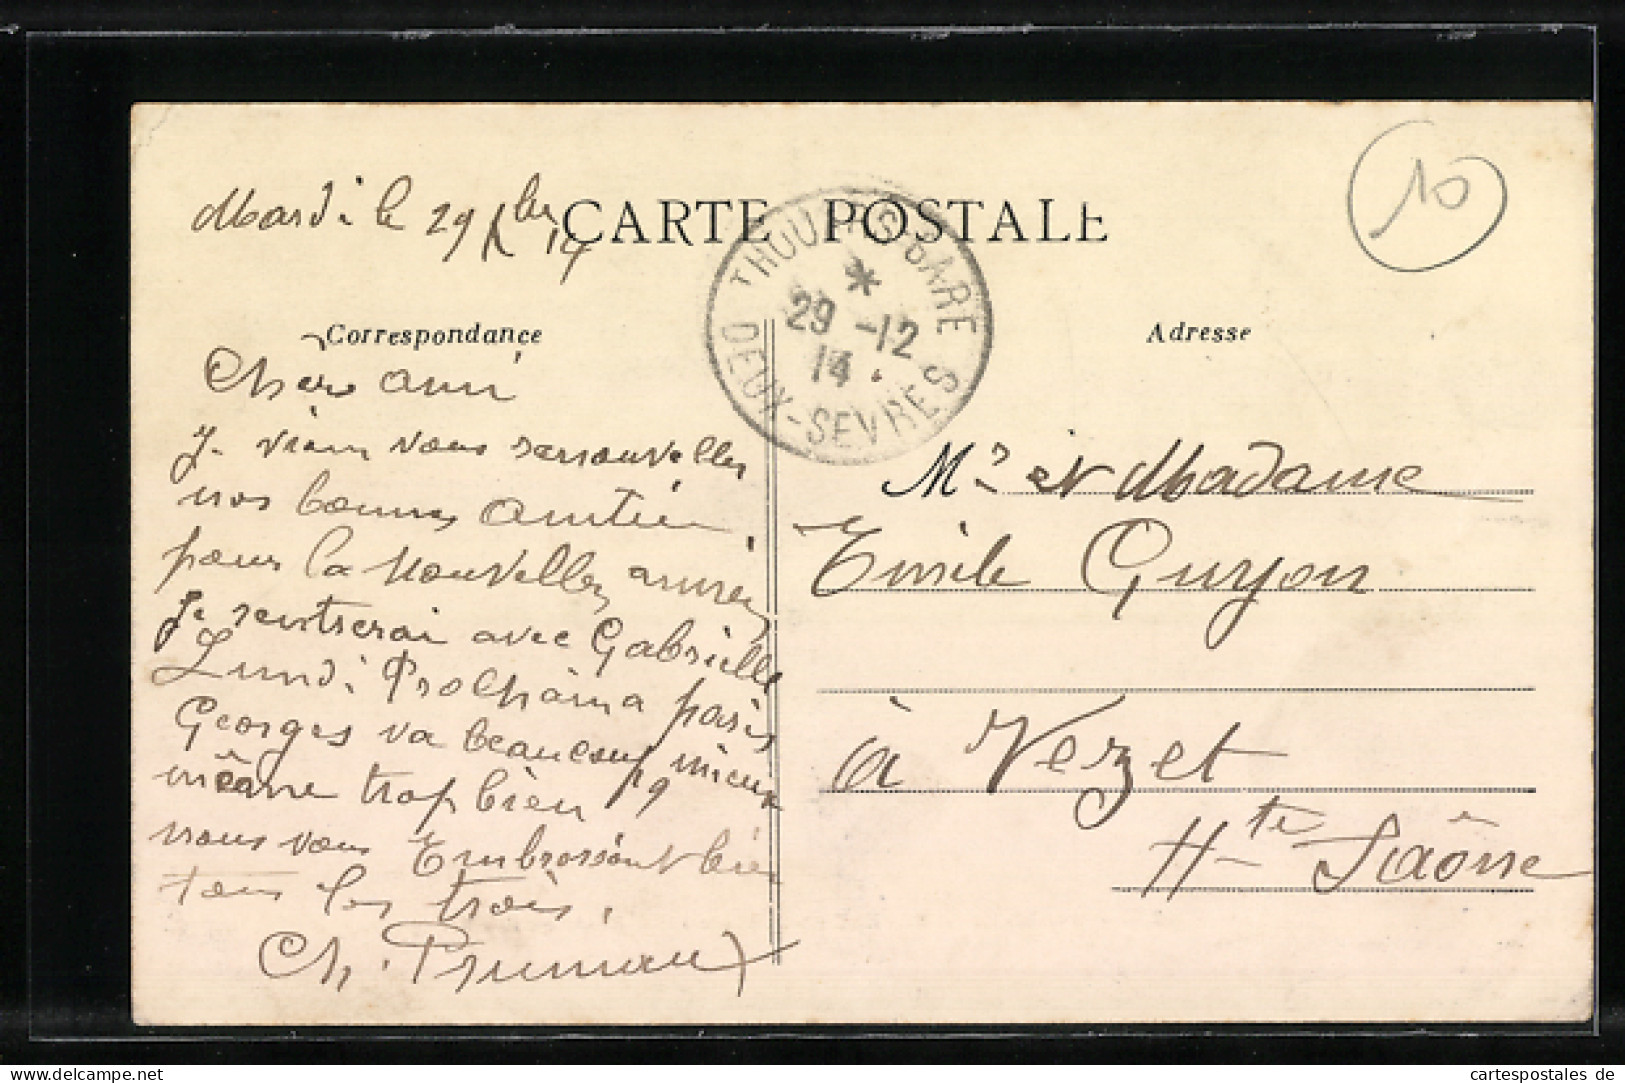 Mardi le 29 Xbre 14
CARTE POSTALE
10
THOUARS-GARE
*
29 -12
14.
DEUX-SEVRES
Correspondance
Adresse
Chère ami
Je vien vous
nos bonnes amitiés
pour la Nouvelles année
Je rentrerai avec Gabrielle
Lundi Prochaina paris
Georges va beaucoup mieux
même trop bien
nous vous Embrassont bien
tous les trois.
Ch. Pruniau
Mr et Madame
Emile Guyon
à Vezet
Hte Saône
www.cartespostales.de
cartespostales de